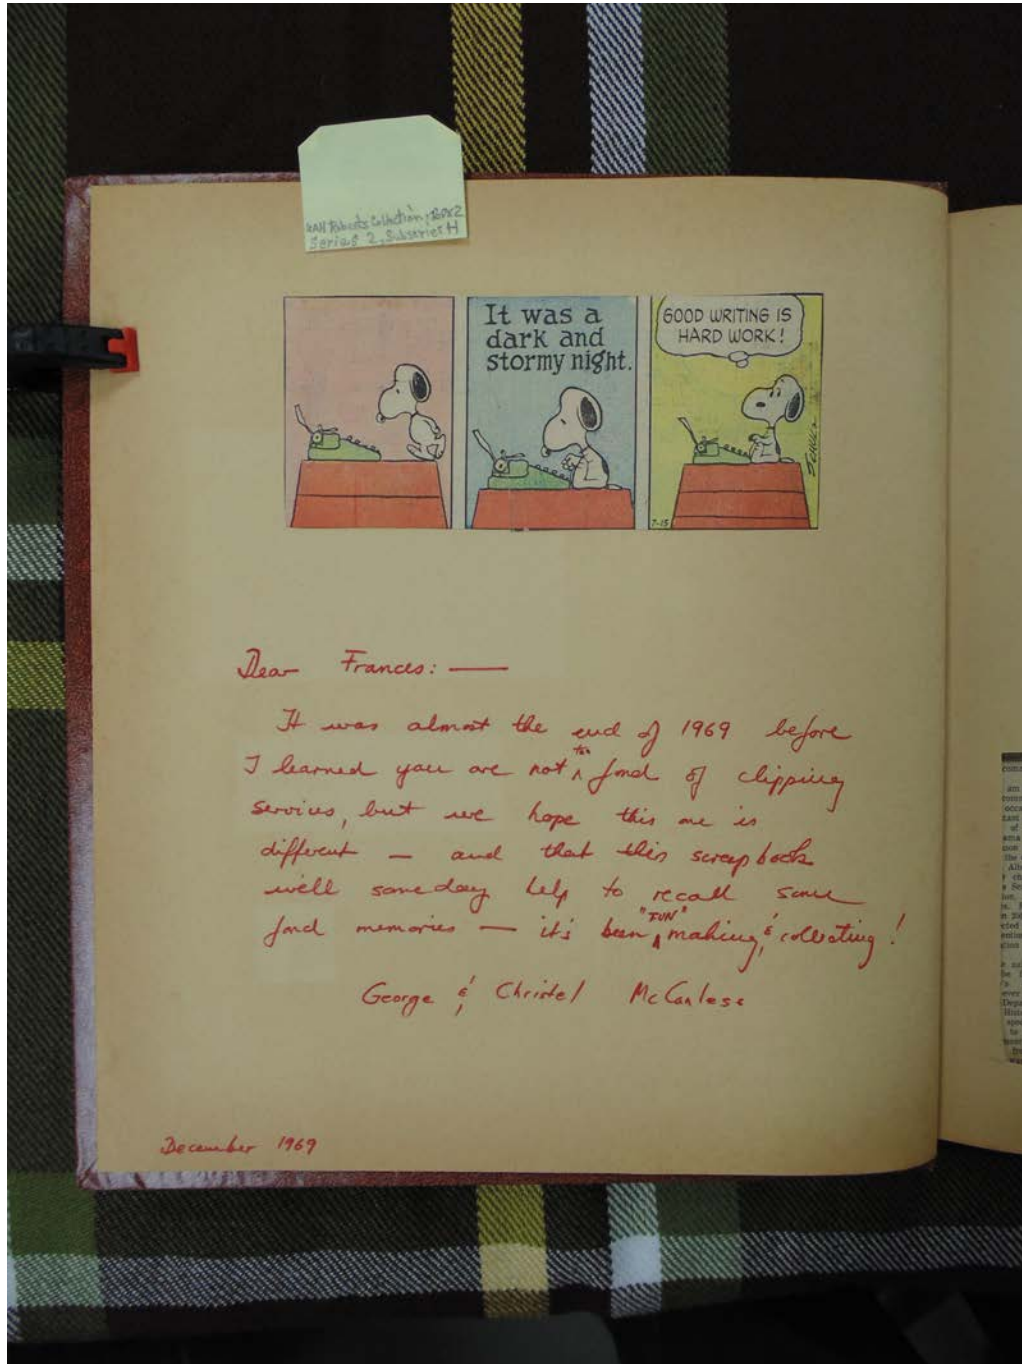 UAH Roberts Collection, Box 2
Series 2, Subseries H
It was a
dark and
stormy night.
GOOD WRITING IS
HARD WORK!
SCHULZ
7-15
Dear Frances: —
It was almost the end of 1969 before
I learned you are not too fond of clipping
services, but we hope this one is
different — and that this scrapbook
will someday help to recall some
fond memories — it's been "FUN" making & collecting!
George & Christel McCanless
December 1969